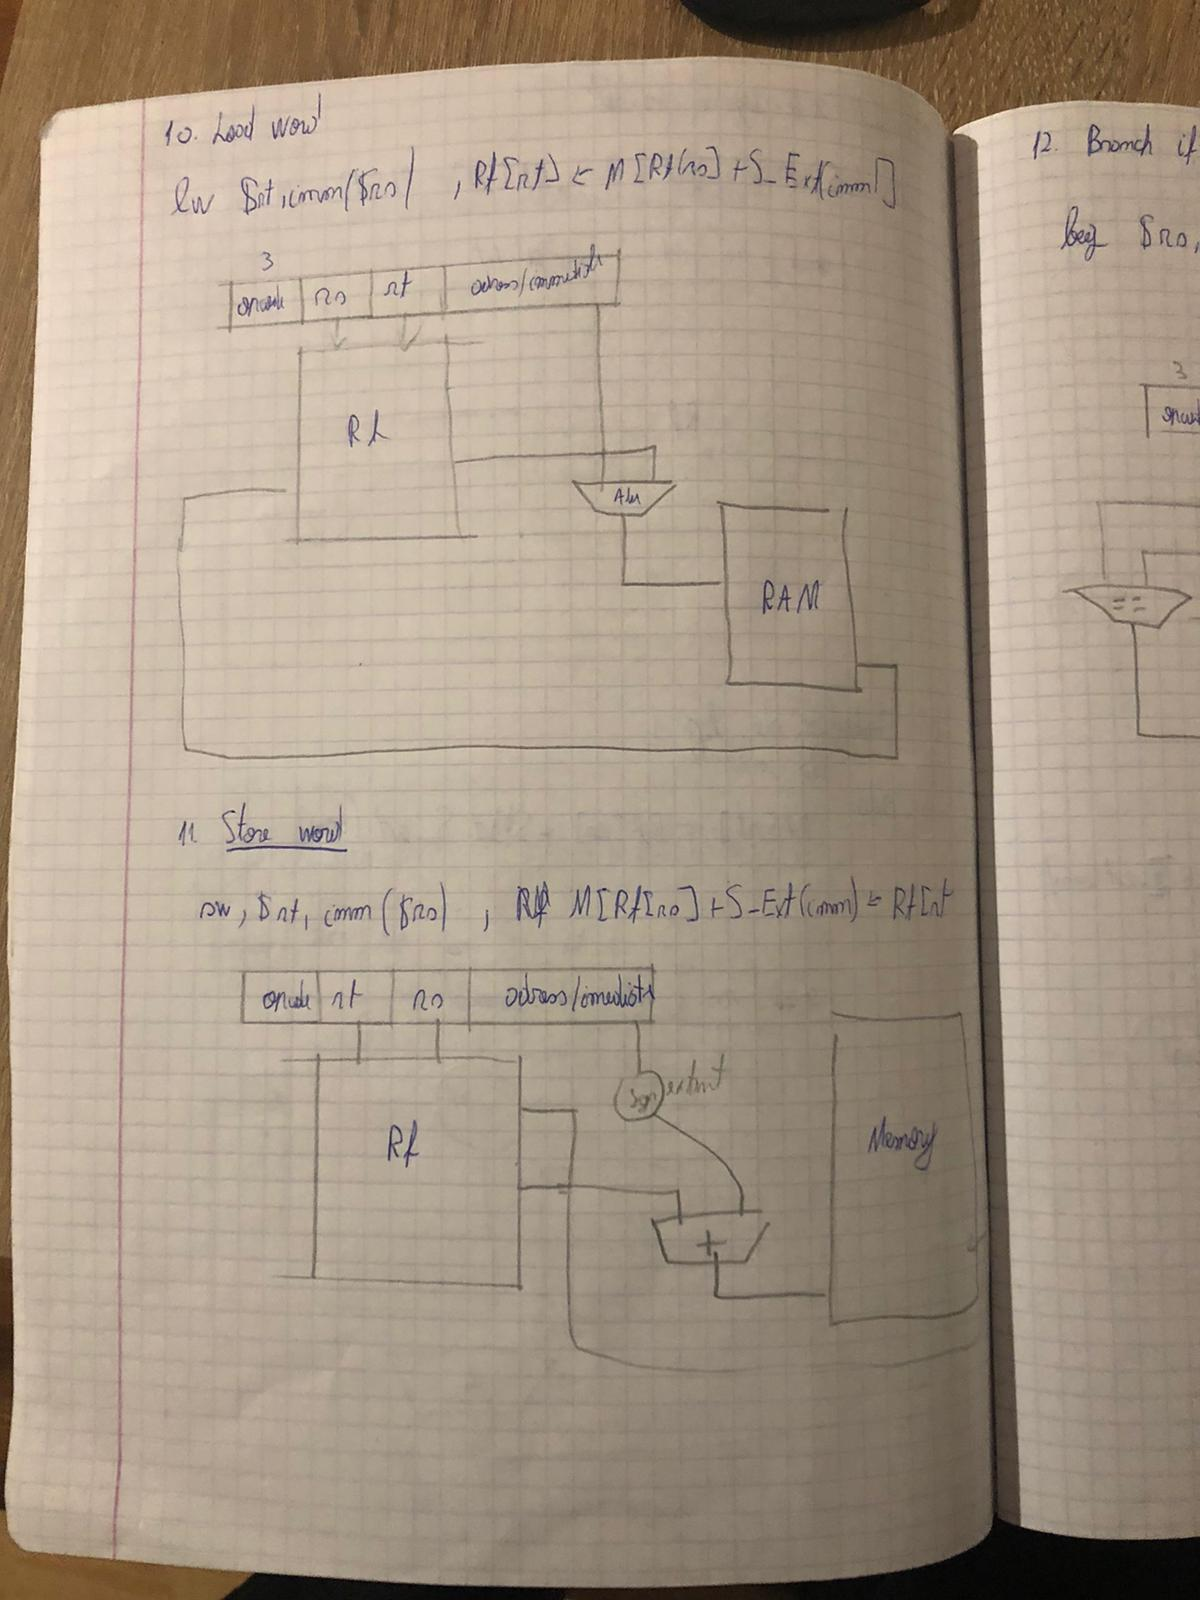 10. Load word
lw $rt, imm($rs) , Rf[rt] ← M[Rf(rs] + S_Ext(imm)]
3
opcode rs rt adress/immediate
Rf
Alu
RAM
11. Store word
sw, $rt, imm($rs) , M[Rf[rs] + S_Ext(imm) ← Rf[rt
opcode rt rs adress/imediate
Sgn extent
Rf
Memory
+
12. Branch if
beq $rs,
3
opcode
==